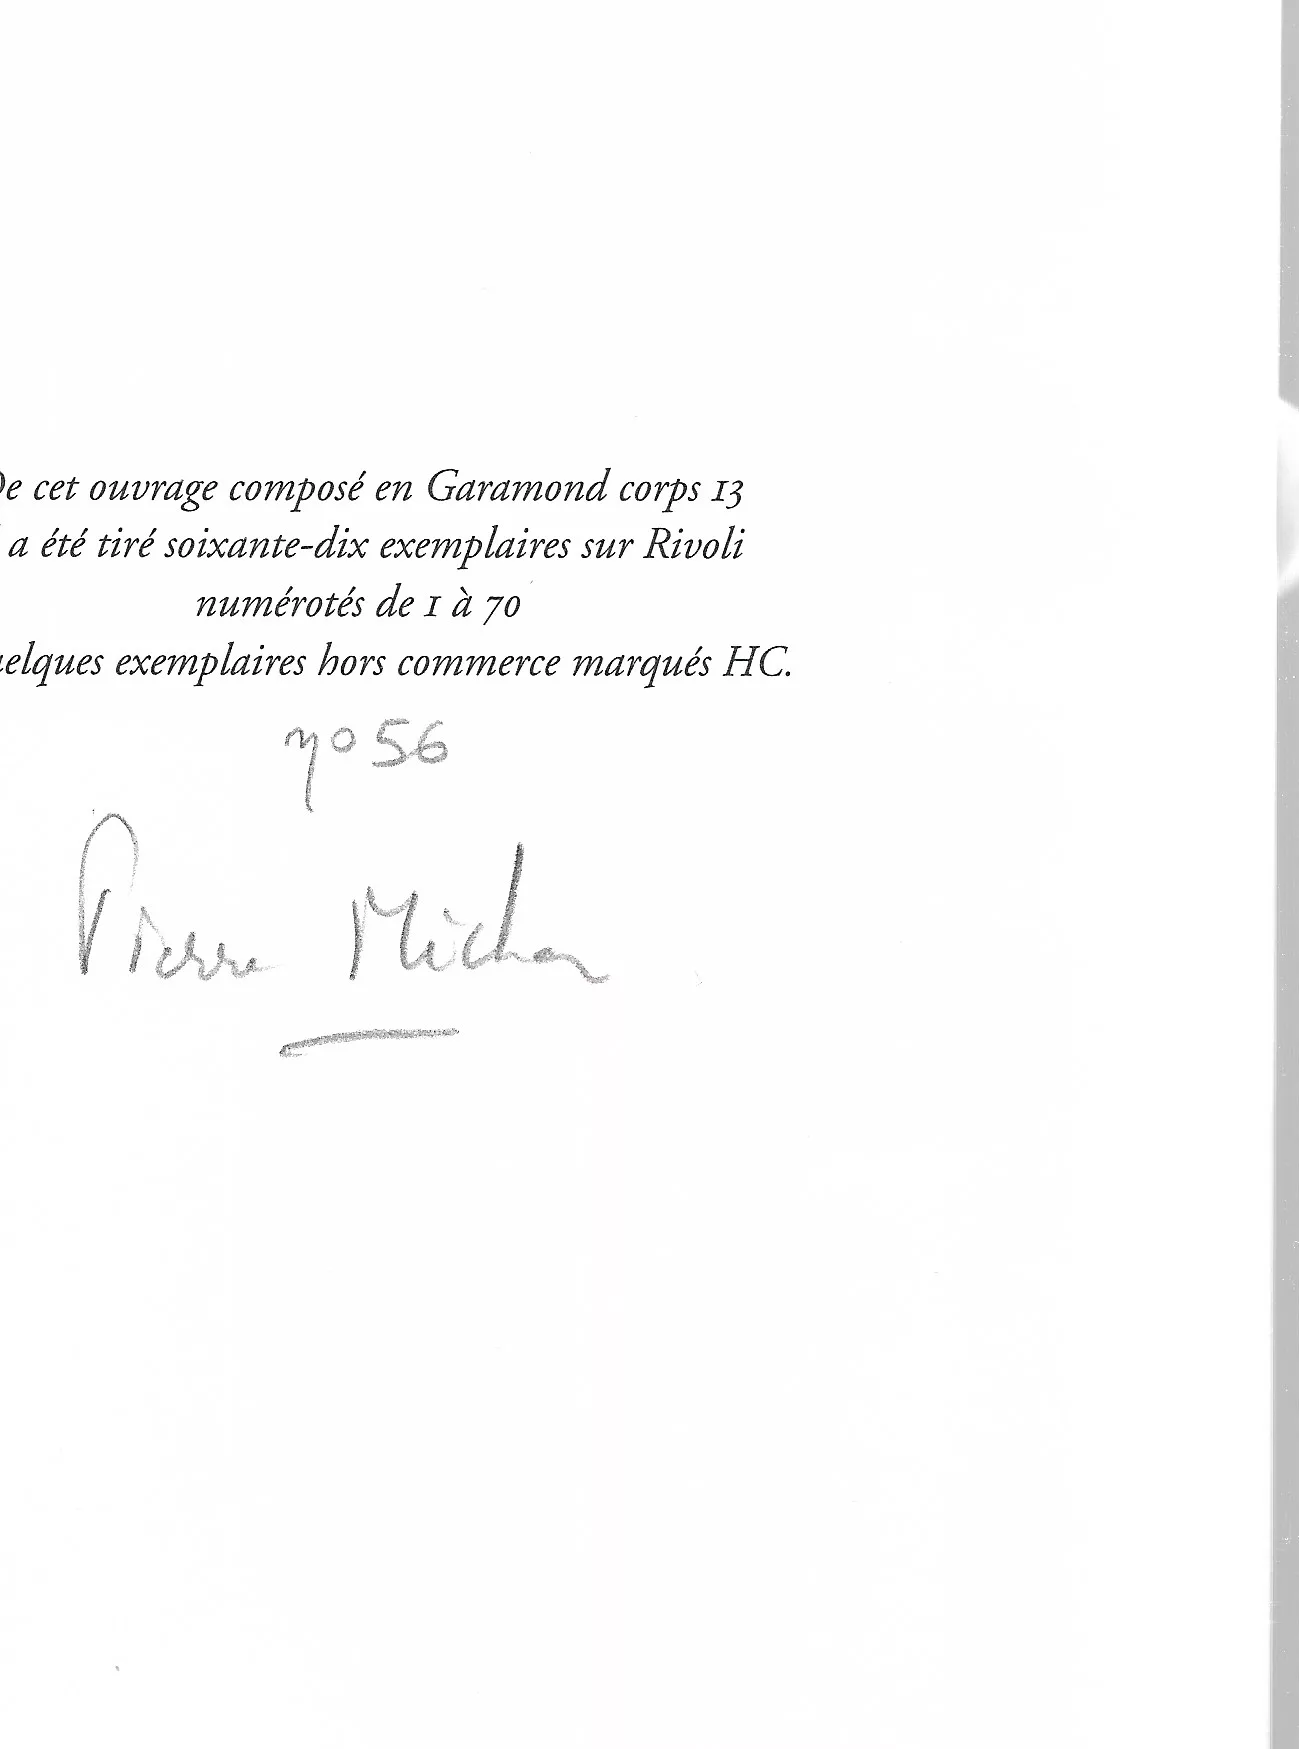 De cet ouvrage composé en Garamond corps 13
a été tiré soixante-dix exemplaires sur Rivoli
numérotés de 1 à 70
uelques exemplaires hors commerce marqués HC.
nº 56
Pierre Michon